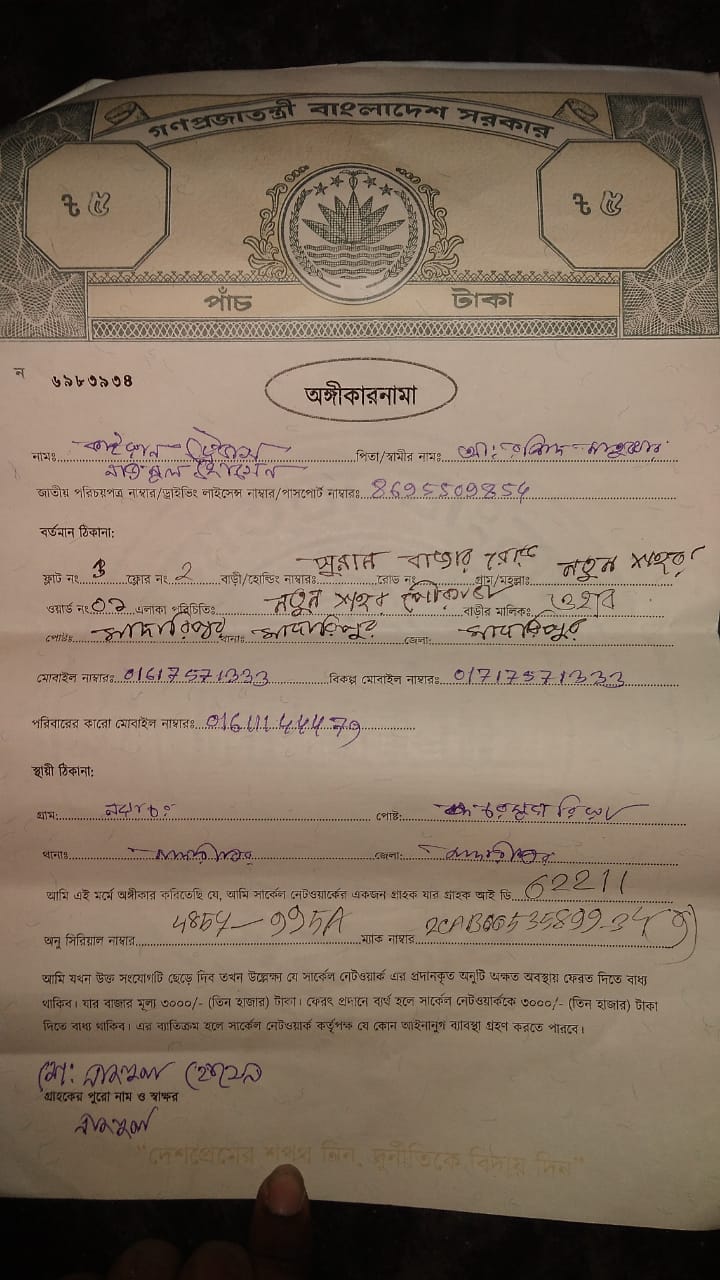 গণপ্রজাতন্ত্রী বাংলাদেশ সরকার
৳ ৫ ৳ ৫
পাঁচ টাকা
ন ৬৯৮৩৯৩৪
অঙ্গীকারনামা
নামঃ পিতা/স্বামীর নামঃ আঃ রশিদ
হোসেন
জাতীয় পরিচয়পত্র নাম্বার/ড্রাইভিং লাইসেন্স নাম্বার/পাসপোর্ট নাম্বারঃ 8695509854
বর্তমান ঠিকানা:
পুরান বাজার রোড নতুন শহর
ফ্লাট নং 3 ফ্লোর নং 2 বাড়ী/হোল্ডিং নাম্বারঃ রোড নং গ্রাম/মহল্লাঃ
ওয়ার্ড নং 02 এলাকা পরিচিতিঃ নতুন শহর বাড়ীর মালিকঃ ওহাব
পোষ্টঃ মাদারিপুর থানাঃ মাদারিপুর জেলা: মাদারিপুর
মোবাইল নাম্বারঃ 01617571333 বিকল্প মোবাইল নাম্বারঃ 01717571333
পরিবারের কারো মোবাইল নাম্বারঃ 01611144479
স্থায়ী ঠিকানা:
গ্রাম: পোষ্ট:
থানাঃ মাদারীপুর জেলা: মাদারীপুর
আমি এই মর্মে অঙ্গীকার করিতেছি যে, আমি সার্কেল নেটওয়ার্কের একজন গ্রাহক যার গ্রাহক আই ডি 62211
অনু সিরিয়াল নাম্বার 4854-995A ম্যাক নাম্বার
আমি যখন উক্ত সংযোগটি ছেড়ে দিব তখন উল্লেক্ষ্য যে সার্কেল নেটওয়ার্ক এর প্রদানকৃত অনুটি অক্ষত অবস্থায় ফেরত দিতে বাধ্য
থাকিব। যার বাজার মূল্য ৩০০০/- (তিন হাজার) টাকা। ফেরৎ প্রদানে ব্যর্থ হলে সার্কেল নেটওয়ার্ককে ৩০০০/- (তিন হাজার) টাকা
দিতে বাধ্য থাকিব। এর ব্যতিক্রম হলে সার্কেল নেটওয়ার্ক কর্তৃপক্ষ যে কোন আইনানুগ ব্যবস্থা গ্রহণ করতে পারবে।
মো: নাজমুল হোসেন
গ্রাহকের পুরো নাম ও স্বাক্ষর
নাজমুল
“দেশপ্রেমের শপথ নিন, দুর্নীতিকে বিদায় দিন”